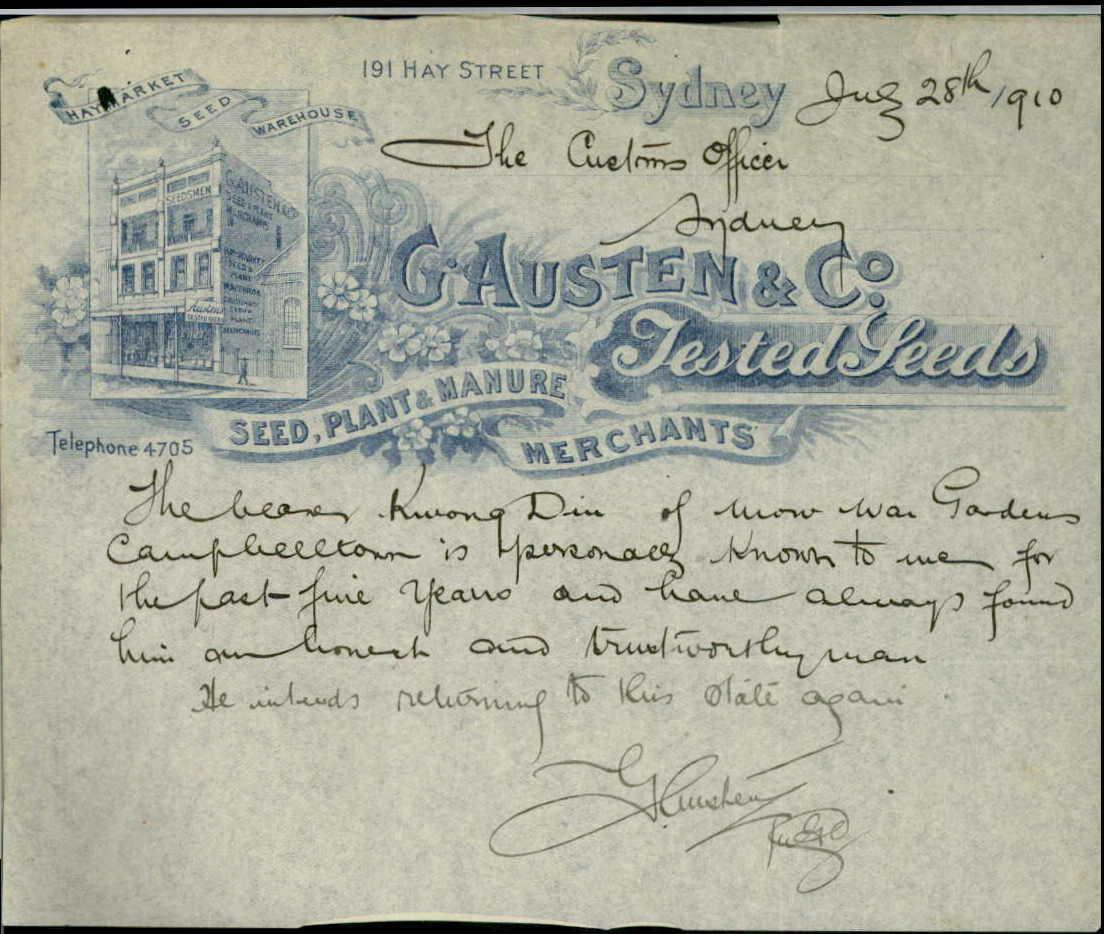 191 HAY STREET Sydney July 28th 1910
HAYMARKET SEED WAREHOUSE
The Customs Officer
Sydney
SEEDSMEN
G. AUSTEN & Co.
Tested Seeds
SEED, PLANT & MANURE
MERCHANTS
Telephone 4705
The bearer Kwong Din of Mow War Gardens
Campbelltown is personally known to me for
the past five years and have always found
him an honest and trustworthy man
He intends returning to this State again
G Austen